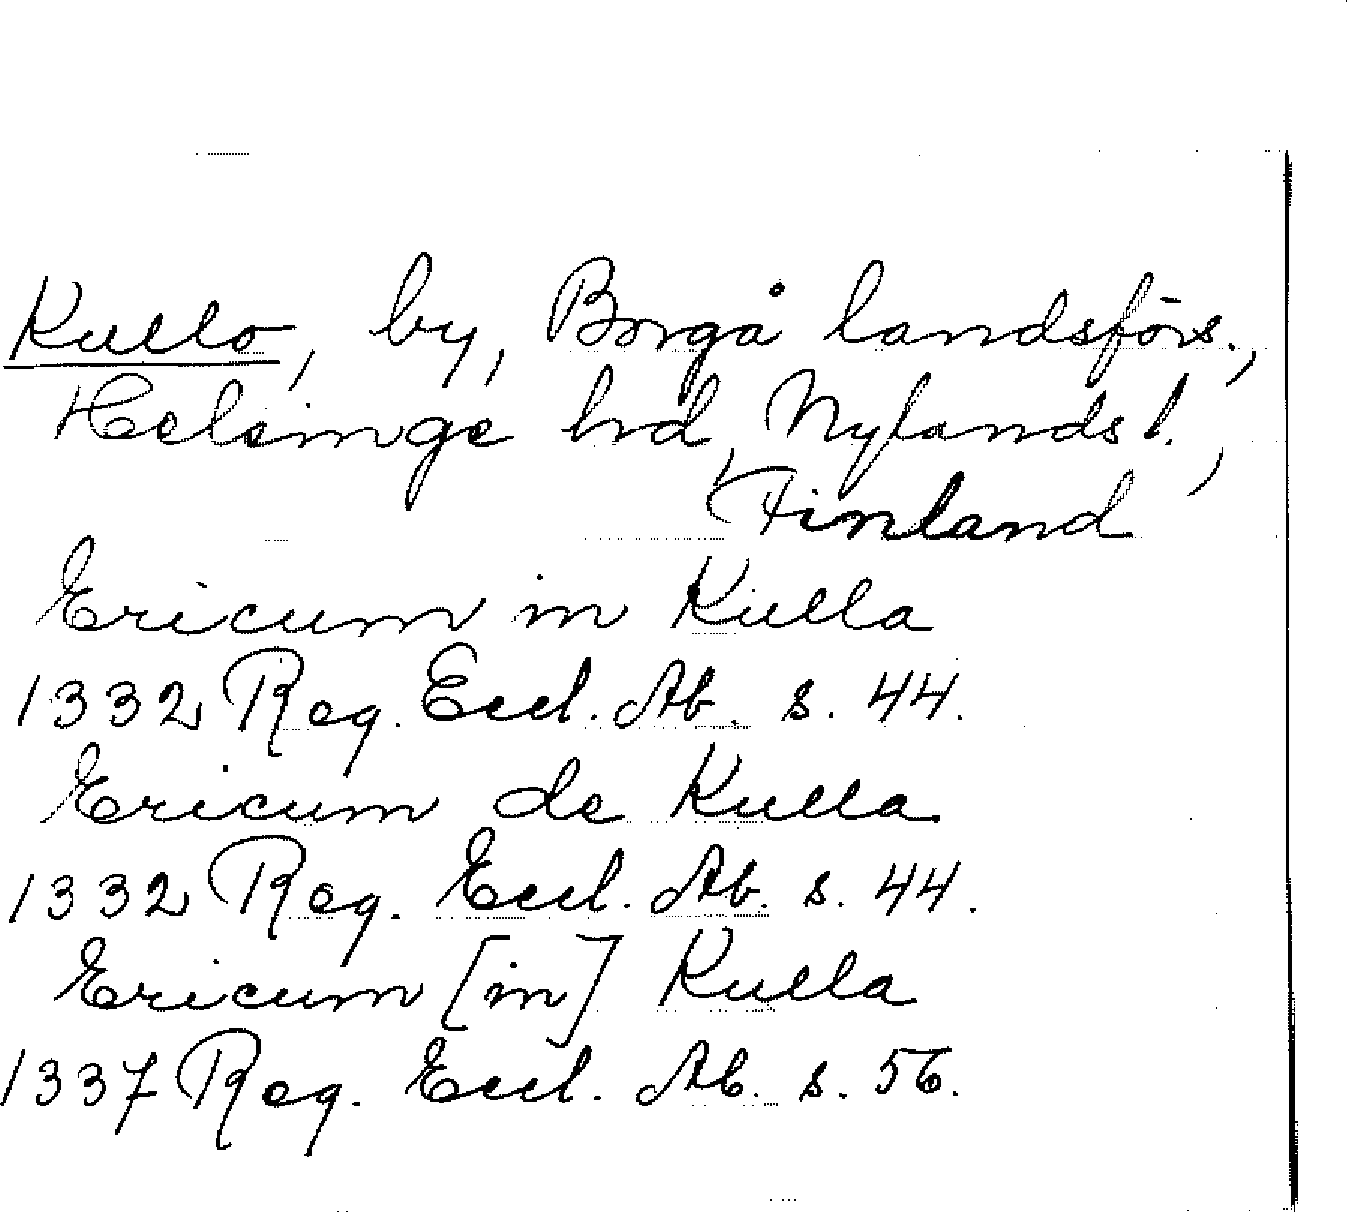 Kullo, by, Borgå landsförs.,
Helsinge hrd, Nylands l.,
Finland
Ericum in Kulla
1332 Reg. Eccl. Ab. s. 44.
Ericum de Kulla
1332 Reg. Eccl. Ab. s. 44.
Ericum [in] Kulla
1337 Reg. Eccl. Ab. s. 56.